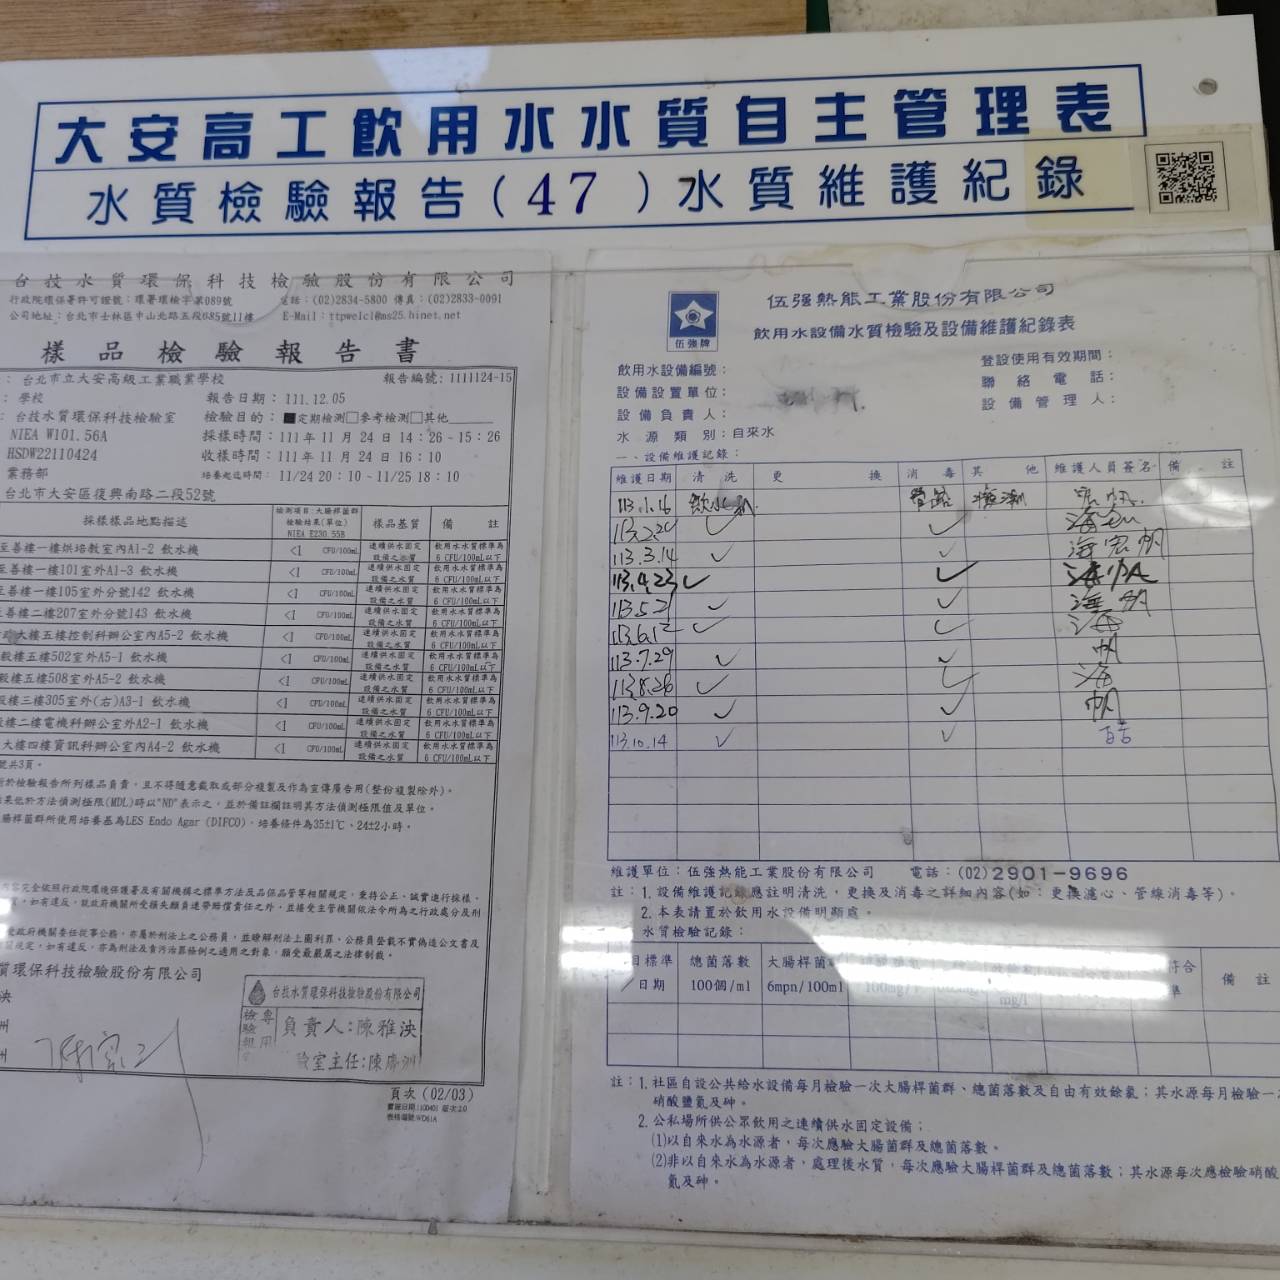 大安高工飲用水水質自主管理表
水質檢驗報告(47)水質維護紀錄
台技水質環保科技檢驗股份有限公司
行政院環保署許可證號：環署環檢字第089號 電話：(02)2834-5800 傳真：(02)2833-0091
公司地址：台北市士林區中山北路五段685號11樓 E-Mail：ttpwelcl@ms25.hinet.net
樣品檢驗報告書
：台北市立大安高級工業職業學校 報告編號：1111124-15
：學校 報告日期：111.12.05
：台技水質環保科技檢驗室 檢驗目的：■定期檢測□參考檢測□其他
NIEA W101.56A 採樣時間：111年11月24日14：26~15：26
HSDW22110424 收樣時間：111年11月24日16：10
業務部 培養起迄時間：11/24 20：10~11/25 18：10
台北市大安區復興南路二段52號
採樣樣品地點描述 檢測項目：大腸桿菌群 檢驗結果(單位) NIEA E230.55B 樣品基質 備註
至善樓一樓烘培教室內A1-2 飲水機 <1 CFU/100mL 連續供水固定設備之水質 飲用水水質標準為6 CFU/100mL以下
至善樓一樓101室外A1-3 飲水機 <1 CFU/100mL 連續供水固定設備之水質 飲用水水質標準為6 CFU/100mL以下
至善樓一樓105室外分號142 飲水機 <1 CFU/100mL 連續供水固定設備之水質 飲用水水質標準為6 CFU/100mL以下
至善樓二樓207室外分號143 飲水機 <1 CFU/100mL 連續供水固定設備之水質 飲用水水質標準為6 CFU/100mL以下
大樓五樓控制科辦公室內A5-2 飲水機 <1 CFU/100mL 連續供水固定設備之水質 飲用水水質標準為6 CFU/100mL以下
樓五樓502室外A5-1 飲水機 <1 CFU/100mL 連續供水固定設備之水質 飲用水水質標準為6 CFU/100mL以下
樓五樓508室外A5-2 飲水機 <1 CFU/100mL 連續供水固定設備之水質 飲用水水質標準為6 CFU/100mL以下
樓三樓305室外(右)A3-1 飲水機 <1 CFU/100mL 連續供水固定設備之水質 飲用水水質標準為6 CFU/100mL以下
樓二樓電機科辦公室外A2-1 飲水機 <1 CFU/100mL 連續供水固定設備之水質 飲用水水質標準為6 CFU/100mL以下
大樓四樓資訊科辦公室內A4-2 飲水機 <1 CFU/100mL 連續供水固定設備之水質 飲用水水質標準為6 CFU/100mL以下
號共3頁。
於檢驗報告所列樣品負責，且不得隨意截取或部分複製及作為宣傳廣告用(整份複製除外)。
果低於方法偵測極限(MDL)時以"ND"表示之，並於備註欄註明其方法偵測極限值及單位。
腸桿菌群所使用培養基為LES Endo Agar (DIFCO)，培養條件為35±1℃、24±2小時。
內容完全依照行政院環境保護署及有關機構之標準方法及品保品管等相關規定，秉持公正、誠實進行採樣。
，如有違反，就政府機關所受損失願負連帶賠償責任之外，並接受主管機關依法令所為之行政處分及刑
受政府機關委任從事公務，亦屬於刑法上之公務員，並瞭解刑法上圖利罪、公務員登載不實偽造公文書及
規定，如有違反，亦為刑法及貪污治罪條例之適用之對象，願受最嚴厲之法律制裁。
質環保科技檢驗股份有限公司
台技水質環保科技檢驗股份有限公司
檢驗報告專用
負責人：陳雅泱
室主任：陳
頁次(02/03)
伍強牌
伍強熱能工業股份有限公司
飲用水設備水質檢驗及設備維護紀錄表
飲用水設備編號： 登設使用有效期間：
設備設置單位： 聯絡電話：
設備負責人： 設備管理人：
水源類別：自來水
一、設備維護記錄：
維護日期 清洗 更換 消毒 其他 維護人員簽名 備註
113.1.16 飲水機 管路 檢測
113.2.29 ✓ ✓
113.3.14 ✓ ✓ 海宏帆
113.4.23 ✓ ✓ 海帆
113.5.21 ✓ ✓ 海帆
113.6.12 ✓ ✓ 海
113.7.29 ✓ ✓ 帆
113.8.26 ✓ ✓ 海
113.9.20 ✓ ✓ 帆
113.10.14 ✓ ✓
維護單位：伍強熱能工業股份有限公司 電話：(02)2901-9696
註：1.設備維護記錄應註明清洗，更換及消毒之詳細內容(如：更換濾心、管線消毒等)。
2.本表請置於飲用水設備明顯處。
水質檢驗記錄：
目標準／日期 總菌落數 100個/ml 大腸桿菌 6mpn/100ml 符合 備註
註：1.社區自設公共給水設備每月檢驗一次大腸桿菌群、總菌落數及自由有效餘氯；其水源每月檢驗一
硝酸鹽氮及砷。
2.公私場所供公眾飲用之連續供水固定設備：
(1)以自來水為水源者，每次應驗大腸菌群及總菌落數。
(2)非以自來水為水源者，處理後水質，每次應驗大腸桿菌群及總菌落數；其水源每次應檢驗硝酸
氮及砷。